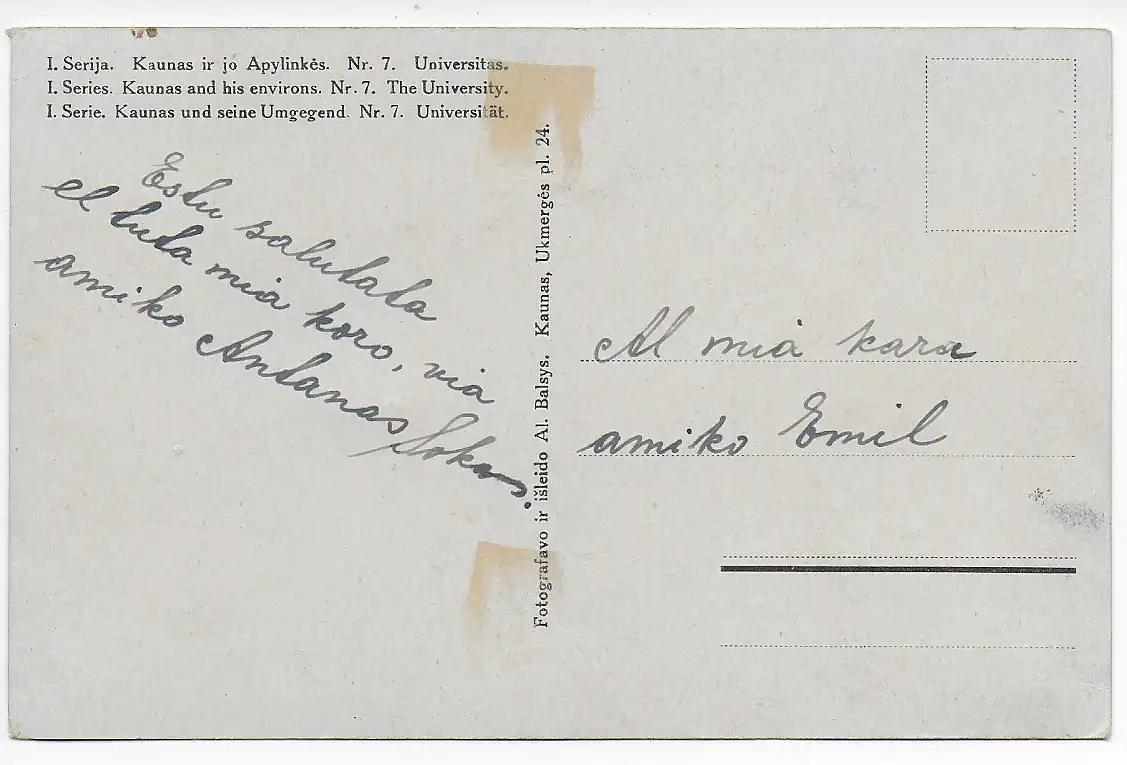 I. Serija. Kaunas ir jo Apylinkės. Nr. 7. Universitas.
I. Series. Kaunas and his environs. Nr. 7. The University.
I. Serie. Kaunas und seine Umgegend. Nr. 7. Universität.
Estu salutata
el tuta mia koro, via
amiko Antanas
Fotografavo ir išleido Al. Balsys. Kaunas, Ukmergės pl. 24.
Al mia kara
amiko Emil